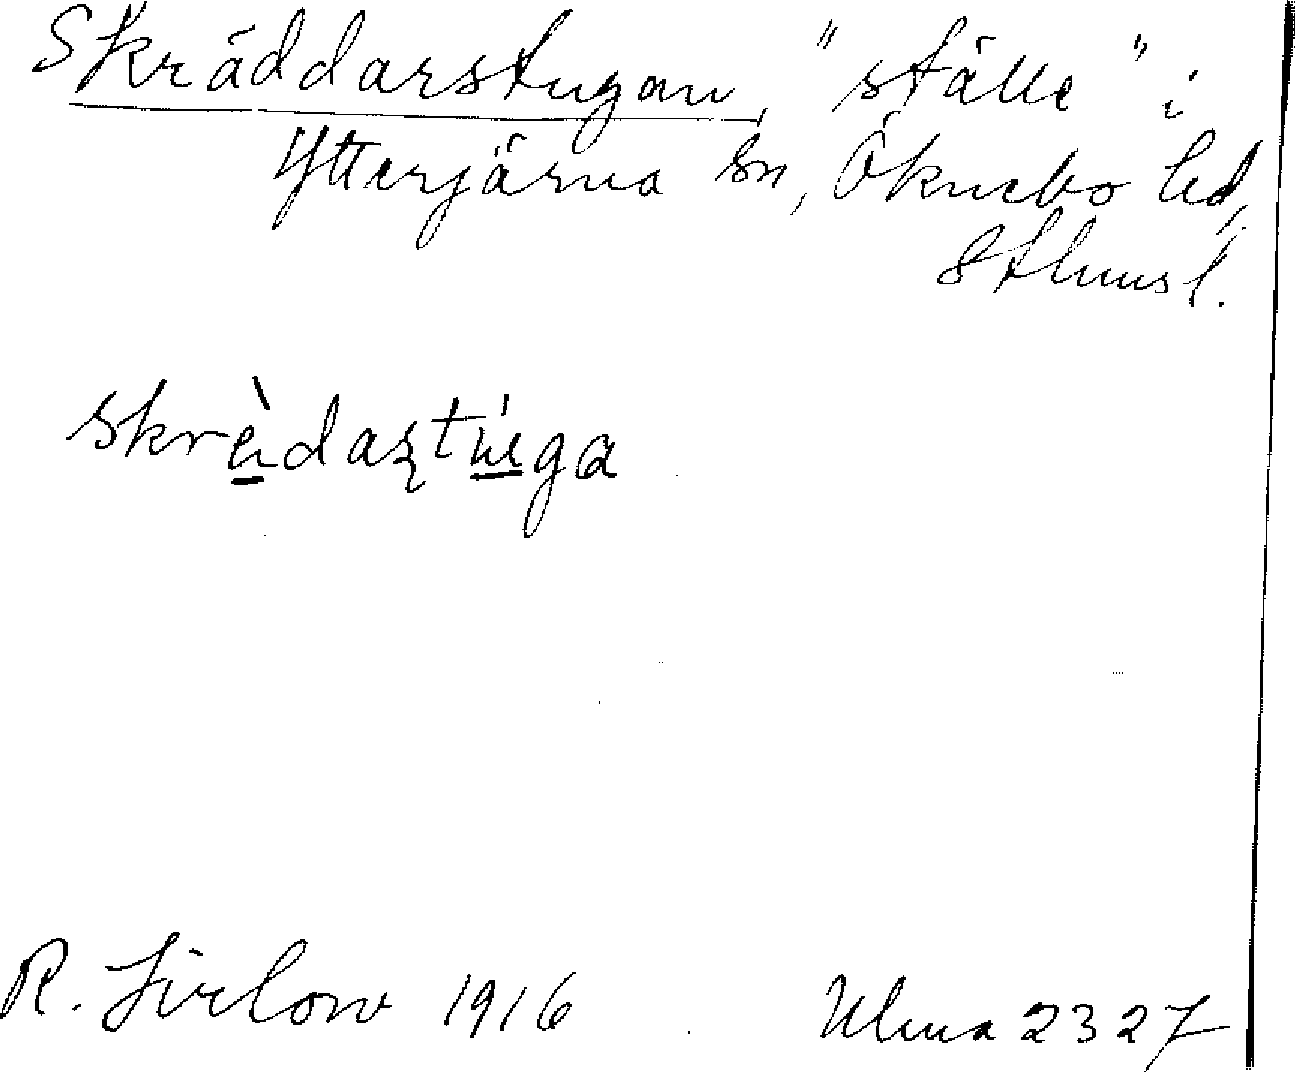 Skräddarstugan, "ställe" i
Ytterjärna sn, Öknebo hd,
Sthmsl.
skrὲdaʂtu̇ga
R. Jirlow 1916 Ulma 2327